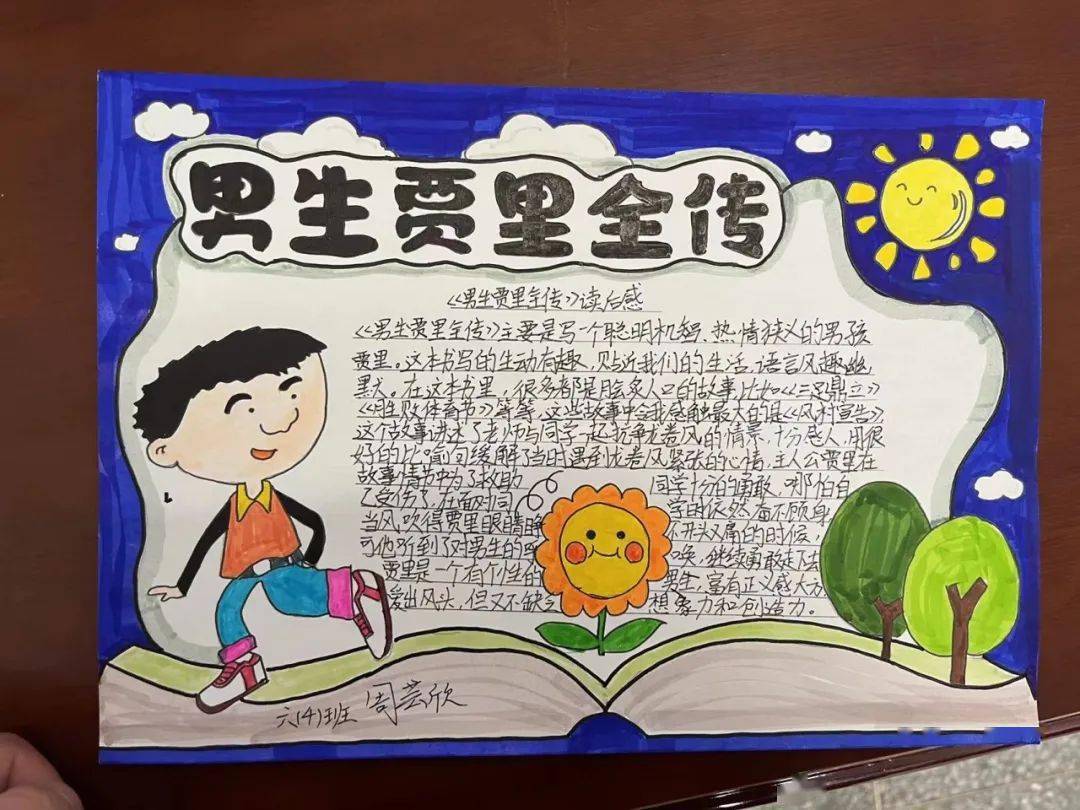 男生贾里全传
《男生贾里全传》读后感
《男生贾里全传》主要是写一个聪明机智、热情狭义的男孩
贾里。这本书写的生动有趣，贴近我们的生活，语言风趣幽
黑大。在这本书里，很多都是脍炙人口的故事比如《三足鼎立》
《男生败体育节》等等，这些故事中令我感触最大的是《风村宣告》
这个故事讲述了老师与同学一起抗争龙卷风的情景，十分感人，用很
好的比喻句缓解了当时遇到龙卷风紧张的心情，主人公贾里在
故事情节中为了救助 同学十分的勇敢，哪怕自
己受伤了，在面对同 学时依然奋不顾身
当风吹得贾里眼睛睁 不开头又痛的时候
可他听到了对男生的呼 唤，继续勇敢走
贾里是一个有个性的 男生，富有正义感大方
爱出风头，但又不缺乏 想象力和创造力。
六(4)班 周芸欣